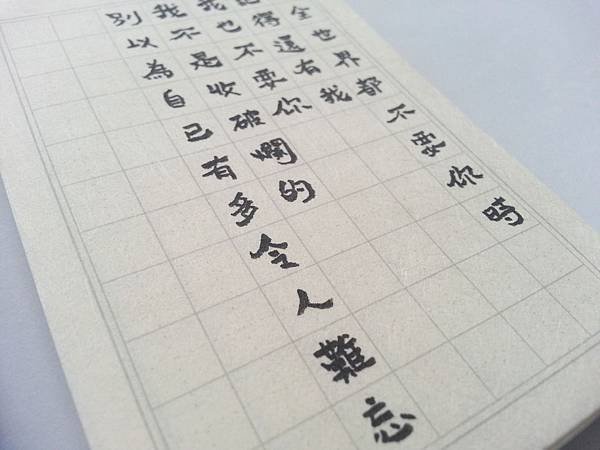 全世界都不要你時
記得還有我
我也不要你
我不是收破爛的
別以為自己有多令人難忘